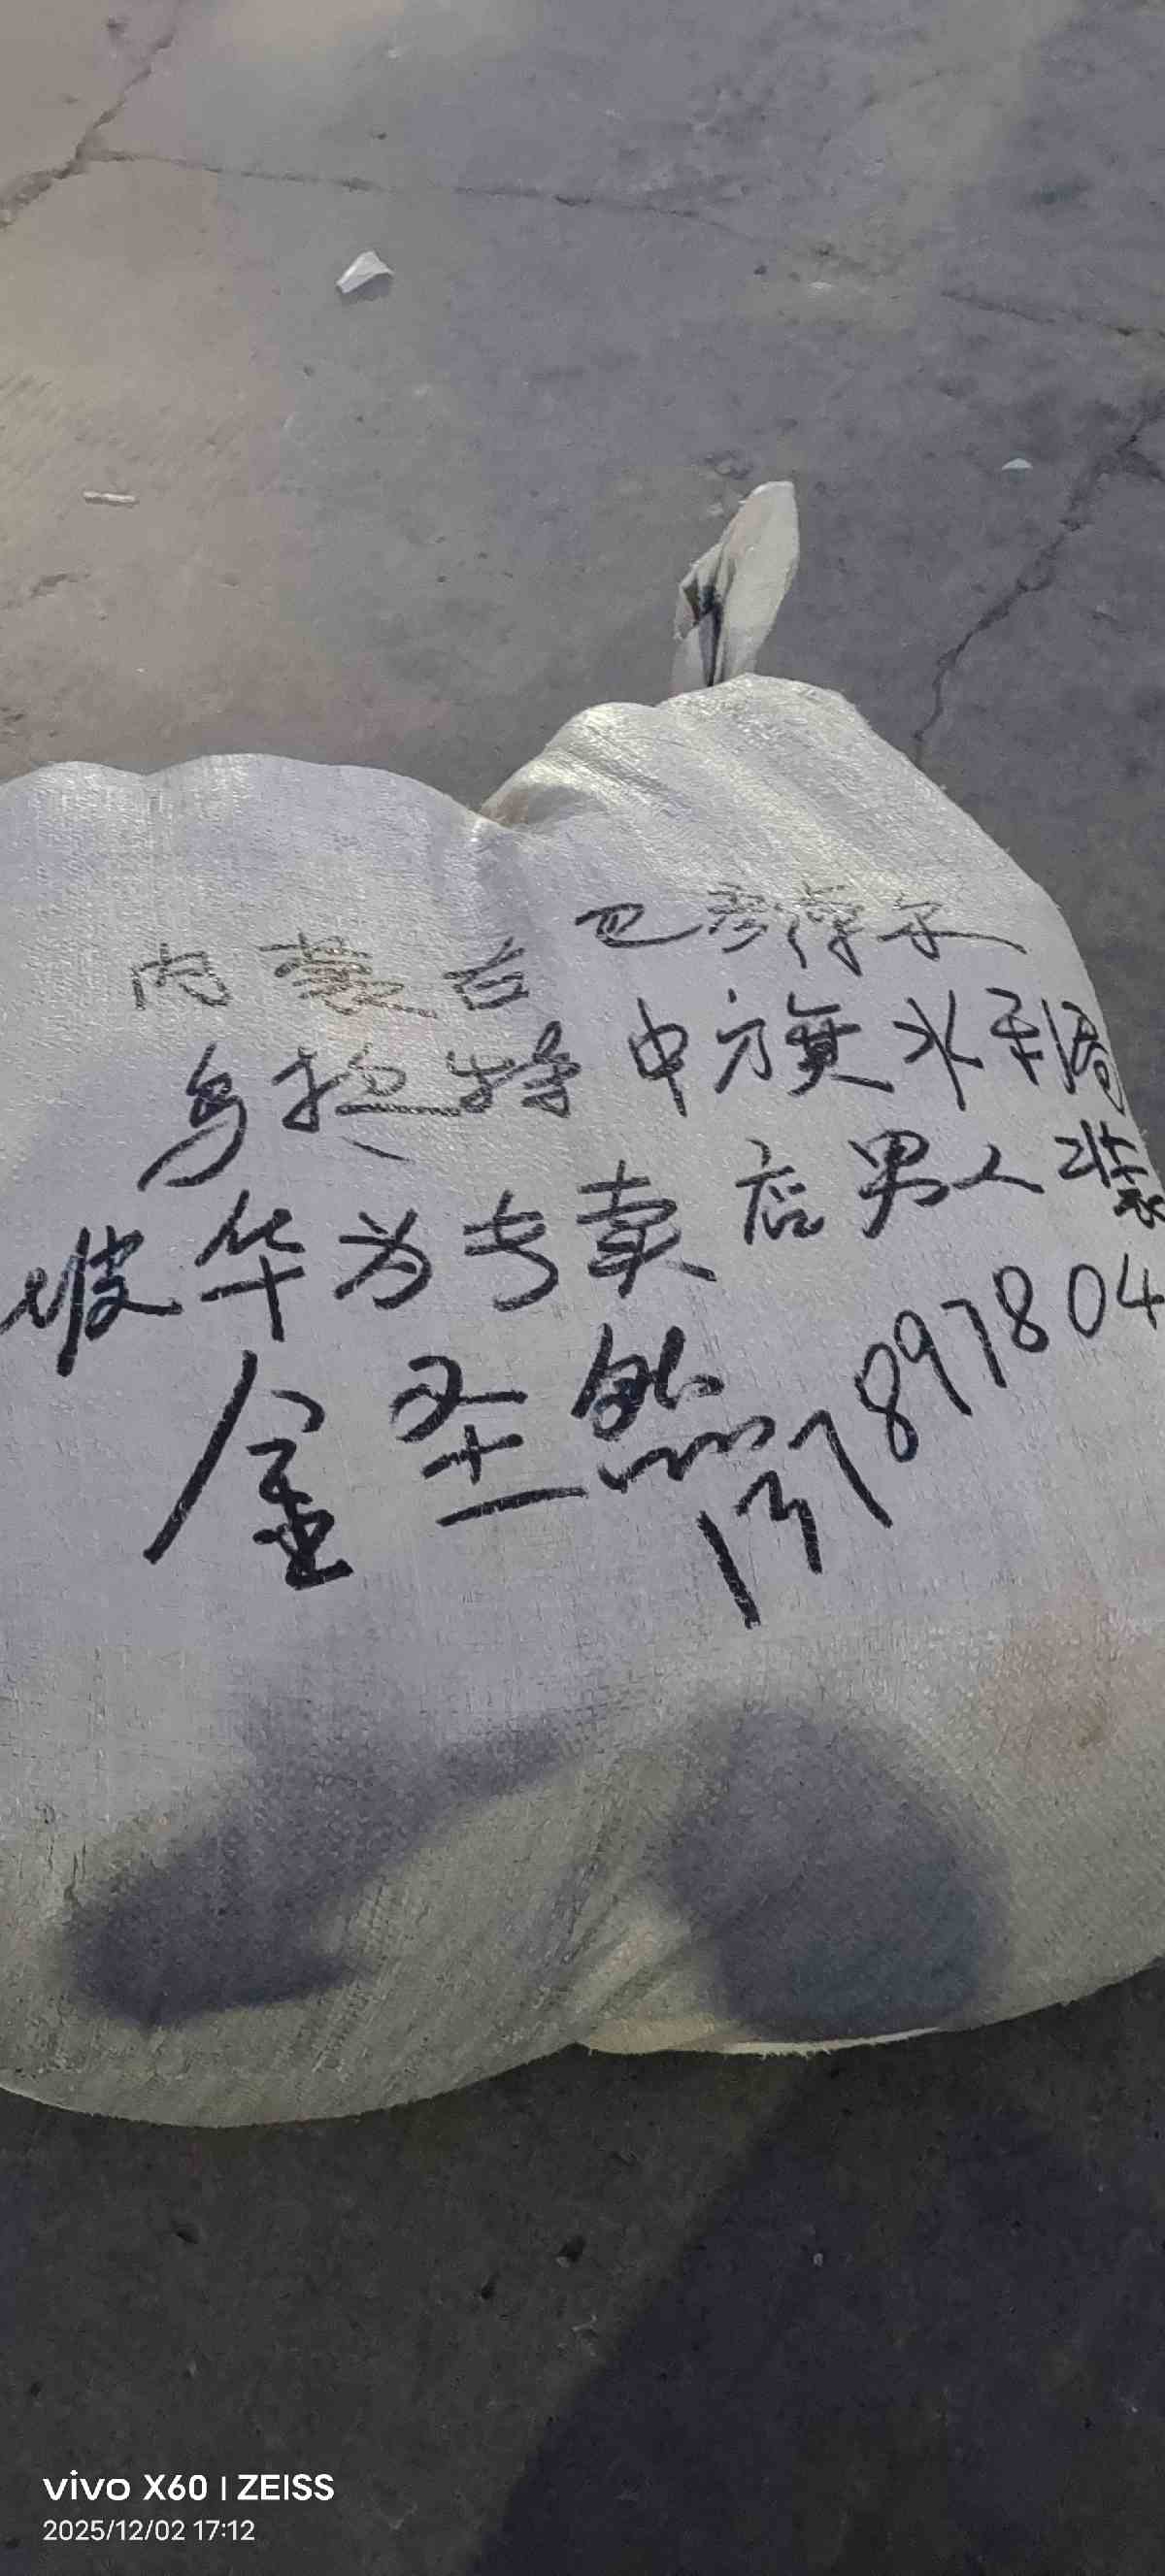 内蒙古 巴彦淖尔
乌拉特中旗水利局
坡华为专卖店男人装
金圣然
137897804
vivo X60 | ZEISS
2025/12/02 17:12